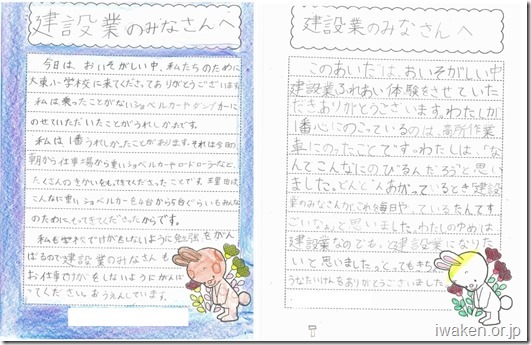 建設業のみなさんへ
今日は、おいそがしい中、私たちのために
大東小学校に来てくださってありがとうございます。
私は乗ったことがないショベルカーやダンプカーに
のせていただいたことがうれしかったです。
私は1番うれしかったことがあります。それは今日の
朝から仕事場から重いショベルカーやロードローラーなど、
たくさんのきかいをもってきてくださったことです。理由は
こんなに重いショベルカーを4台から5台ぐらいもみんな
のためにもってきてくださったからです。
私も学校でけがをしないように勉強をがん
ばるので建設業のみなさんも
お仕事でけがをしないようにがんば
ってください。おうえんしています。
建設業のみなさんへ
このあいだは、おいそがしい中
建設業ふれあい体験をさせていた
だきありがとうございます。わたしが
1番心にのこっているのは、高所作業
車にのったことです。わたしは、「な
んてこんなにのびるんだろう」と思い
ました。どんどん上がっているとき建設
業のみなさんがこれを毎日やっているなんてす
ごいなぁと思いました。わたしのゆめは
建設業なのでもっと建設業になりた
いと思いました。とってもきちょ
うなたいけんをありがとうございました。
iwaken.or.jp